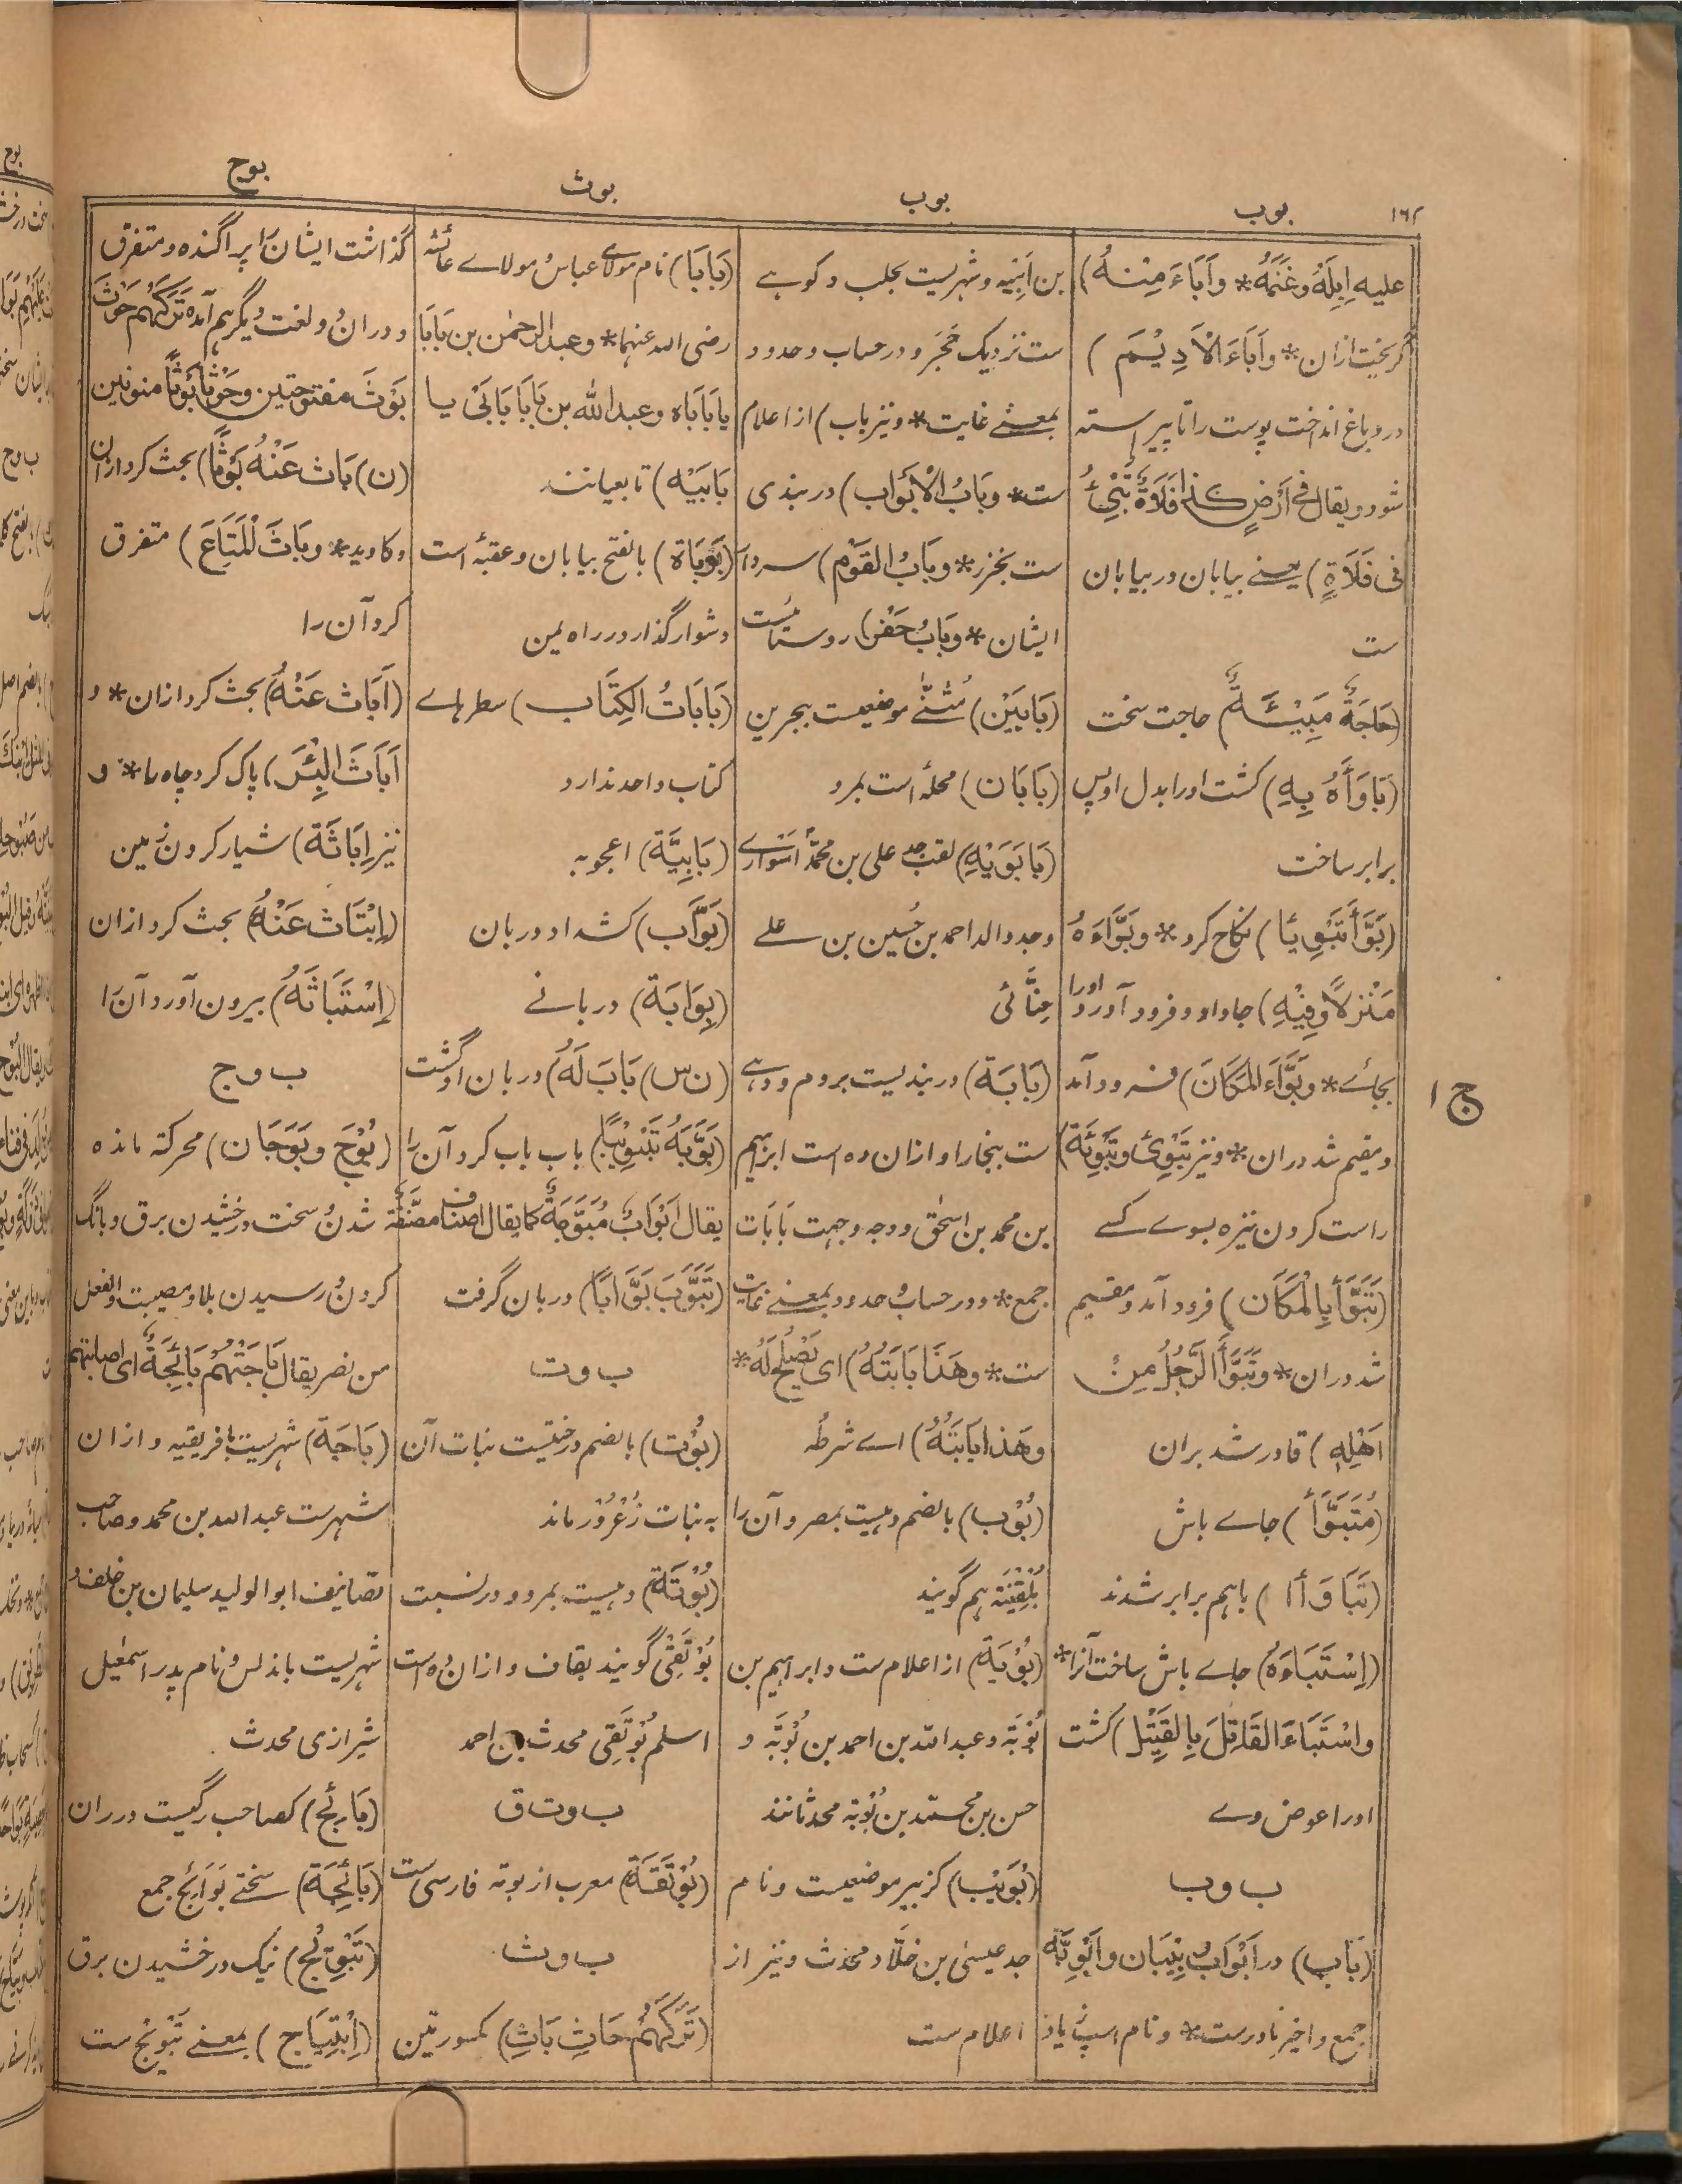 ۱۶۲
بوب
بوب
بوث
بوج
علیه اِبِلَهُ وغَنَمَهُ* واَبَاءَ مِنْهُ)
گریخت ازان* واَبَاءَ الْاَدِیْمَ)
در دباغ انداخت پوست را تا پیراسته
شود و یقال فی اَرْضٍ کذا فَلَاةٌ تُبِیْئُ
فی فَلَاةٍ) یعنے بیابان در بیابان
ست
(حَاجَةٌ مَبِیْئَةٌ) حاجت سخت
(بَاوَأَهُ بِهٖ) کشت اورا بدل او پس
برابر ساخت
(بَوَّأَ تَبْوِیْئًا) نکاح کرد* وبَوَّاءَهُ
مَنْزِلًا وفِیْهِ) جا داد و فرود آورد اورا
بجائے* وبَوَّاءَ المَکَانَ) فرود آمد
و مقیم شد دران* ونیز تَبْوِیْ وتَبْوِئَة)
راست کردن نیزه بسوے کسے
(تَبَوَّأَ بِالْمَکَان) فرود آمد و مقیم
شد دران* وتَبَوَّأَ الرَّجُلُ مِنْ
اَهْلِهٖ) قادر شد بران
(مُتَبَوَّأ) جاے باش
(تَبَاوَأا) باهم برابر شدند
(اِسْتَبَاءَهُ) جاے باش ساخت آنرا*
واسْتَبَاءَ القَاتِلَ بِالقَتِیْلِ) کشت
اورا عوض وے
ب و ب
(بَاب) در اَبْوَاب بِیْبَان واَبْوِبَة
جمع واخیر نادرست* و نام اسپ زیاد
بن اَبِیْه و شهریست بحلب و کوہے
ست نزدیک هَجَر و در حساب و حدود
بمعنے غایت* ونیز باب) از اعلام
ست* وبَابُ الْاَبْوَاب) دربندی
ست بخزر* وبَابُ القَوْم) سردار
ایشان* وبَابُ حَفْص) روستائیست
(بَابَیْن) مُثَنّٰے موضعیست ببحرین
(بَابَان) محلہ است بمرو
(بَابَوَیْهِ) لقب جد علی بن محمد اَسْوَارے
وجد والد احمد بن حُسین بن علے
حِنَّائی
(بَابَة) دربندیست بروم ودہے
ست ببخارا و ازان ده است ابراهیم
بن محمد بن اسحٰق ووجه وجهت بَابَات
جمع* ودر حساب وحدود بمعنے غایت
ست* وهَذَا بَابَتُهُ) ای یَصْلُحُ لَهُ*
وهَذا بَابَتُهُ) اے شرطُه
(بُوْب) بالضم دهیست بمصر و آن را
بُلْقِیْنَه هم گویند
(بُوْبَة) از اعلام ست و ابراهیم بن
بُوْبَة وعبد اللہ بن احمد بن بُوْبَة و
حسن بن محمد بن بُوْبَة محدثانند
(بُوَیْب) کزبیر موضعیست ونام
جد عیسٰی بن خلَّاد محدث و نیز از
اعلام ست
(بَابَا) نام مولاے عباس مولاے عائشه
رضی اللہ عنهما* وعبد الرحمٰن بن بَابَا
یا بَابَاه وعبد اللہ بن بَابَا بَابَیْ یا
بَابَیْه) تابعیانند
(بَوْبَاة) بالفتح بیابان و عقبۂ است
دشوار گذار در راه یمن
(بَابَاتُ الکِتَاب) سطرہاے
کتاب واحد ندارد
(بَابِیَّة) اعجوبه
(بَوَّاب) کشداد دربان
(بِوَابَة) دربانے
(ن س) بَابَ لَهُ) دربان او گشت
(بَوَّبَهُ تَبْوِیْبًا) باب باب کرد آن را
یقال اَبْوَابٌ مُبَوَّبَةٌ کما یقال اصناف مصنَّفَة
(تَبَوَّبَ بَوَّابًا) دربان گرفت
ب و ت
(بُوْت) بالضم درختیست نبات آن
به نبات زُعْرُوْر ماند
(بُوْتَة) دهیست بمرو و در نسبت
بُوْتَقِیْ گویند بقاف و ازان ده است
اسلم بُوْتَقِی محدث بن احمد
ب و ت ق
(بُوْتَقَة) معرب از بوته فارسی ست
ب و ث
(تَرَکَهُم حَاثِ بَاثِ) کمسورتین
گذاشت ایشان را پراگنده و متفرق
و دران ولغت دیگر هم آمده تَرَکَهُم حَوْثَ
بَوْثَ مفتوحتین وحَوْثًا بَوْثًا منونین
(ن) بَاثَ عَنْهُ بَوْثًا) بحث کرد ازان
وکاوید* وبَاثَ الْمَتَاعَ) متفرق
کرد آن را
(اَبَاثَ عَنْهُ) بحث کرد ازان* و
اَبَاثَ البِئْرَ) پاک کرد چاه را* و
نیز اِبَاثَة) شیار کردن زمین
(اِبْتَاثَ عَنْهُ) بحث کرد ازان
(اِسْتَبَاثَهُ) بیرون آورد آن را
ب و ج
(بُوْج و بَوَجَان) محرکة مانده
شدن و سخت درخشیدن برق و بانگ
کردن و رسیدن بلا و مصیبت والفعل
من نصر یقال بَاجَتْهُمْ بَائِجَةٌ ای اصابتهم
(بَاجَة) شهریست بافریقیه و ازان
شهرست عبد اللہ بن محمد و صاحب
تصانیف ابو الولید سلیمان بن خلف و
شهریست باندلس و نام پدر اسمٰعیل
شیرازی محدث
(بَائِج) کصاحب رگیست در ران
(بَائِجَة) سختے بَوَائِج جمع
(تَبْوِیْج) نیک درخشیدن برق
(اِبْتِیَاج) بمعنے تَبْوِیْج ست
ج ۱